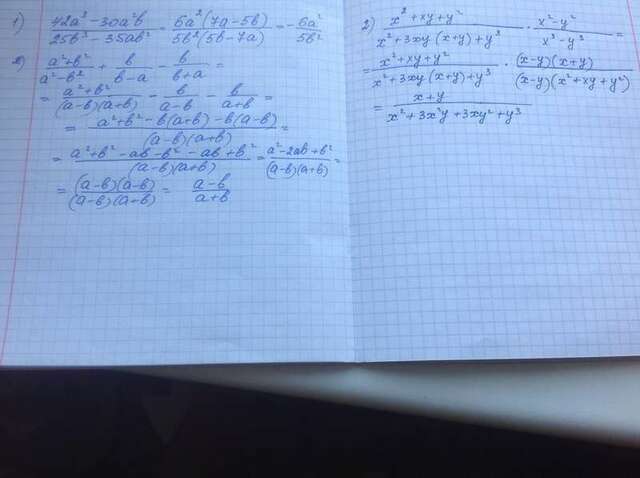 1) (42a³ - 30a²b)/(25b³ - 35ab²) = 6a²(7a - 5b)/5b²(5b - 7a) = - 6a²/5b²
2) (a²+b²)/(a²-b²) + b/(b-a) - b/(b+a) =
= (a²+b²)/(a-b)(a+b) - b/(a-b) - b/(a+b) =
= (a²+b² - b(a+b) - b(a-b))/(a-b)(a+b) =
= (a²+b² - ab - b² - ab + b²)/(a-b)(a+b) = (a² - 2ab + b²)/(a-b)(a+b) =
= (a-b)(a-b)/(a-b)(a+b) = (a-b)/(a+b)
2) (x² + xy + y²)/(x³ + 3xy(x+y) + y³) · (x² - y²)/(x³ - y³) =
= (x² + xy + y²)/(x² + 3xy(x+y) + y³) · (x-y)(x+y)/(x-y)(x² + xy + y²)
= (x+y)/(x² + 3x²y + 3xy² + y³)